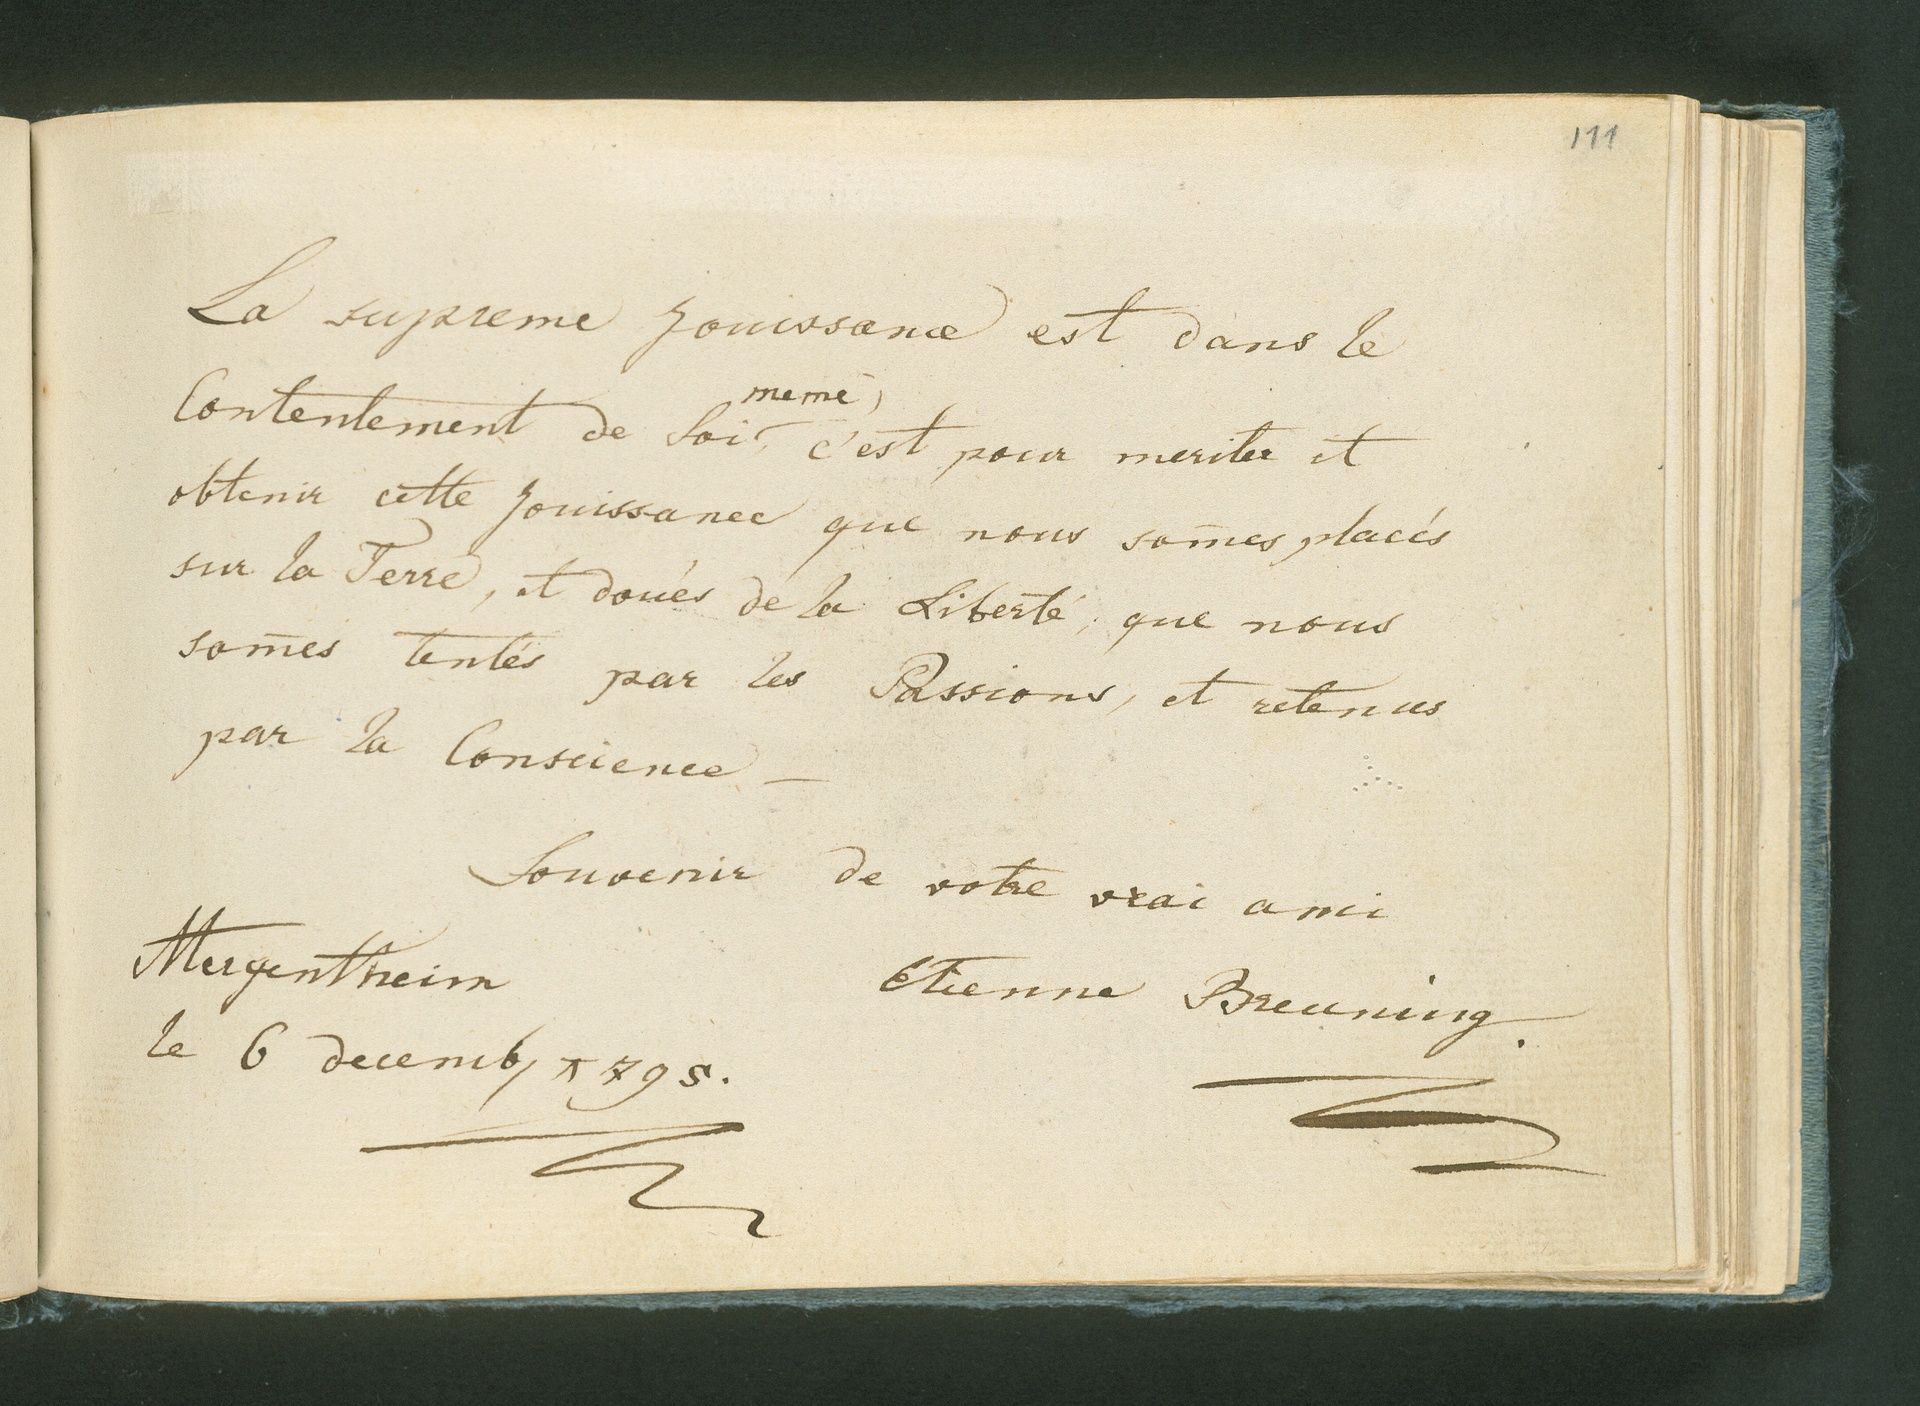 111
La supreme jouissance est dans le
Contentement de Soi meme, c'est pour meriter et
obtenir cette jouissance que nous som̄es placés
sur la Terre, et doués de la Liberté, que nous
som̄es tentés par les Passions, et retenus
par la Conscience –
Souvenir de votre vrai ami
Mergentheim
Etienne Breuning.
le 6 decemb, 1795.